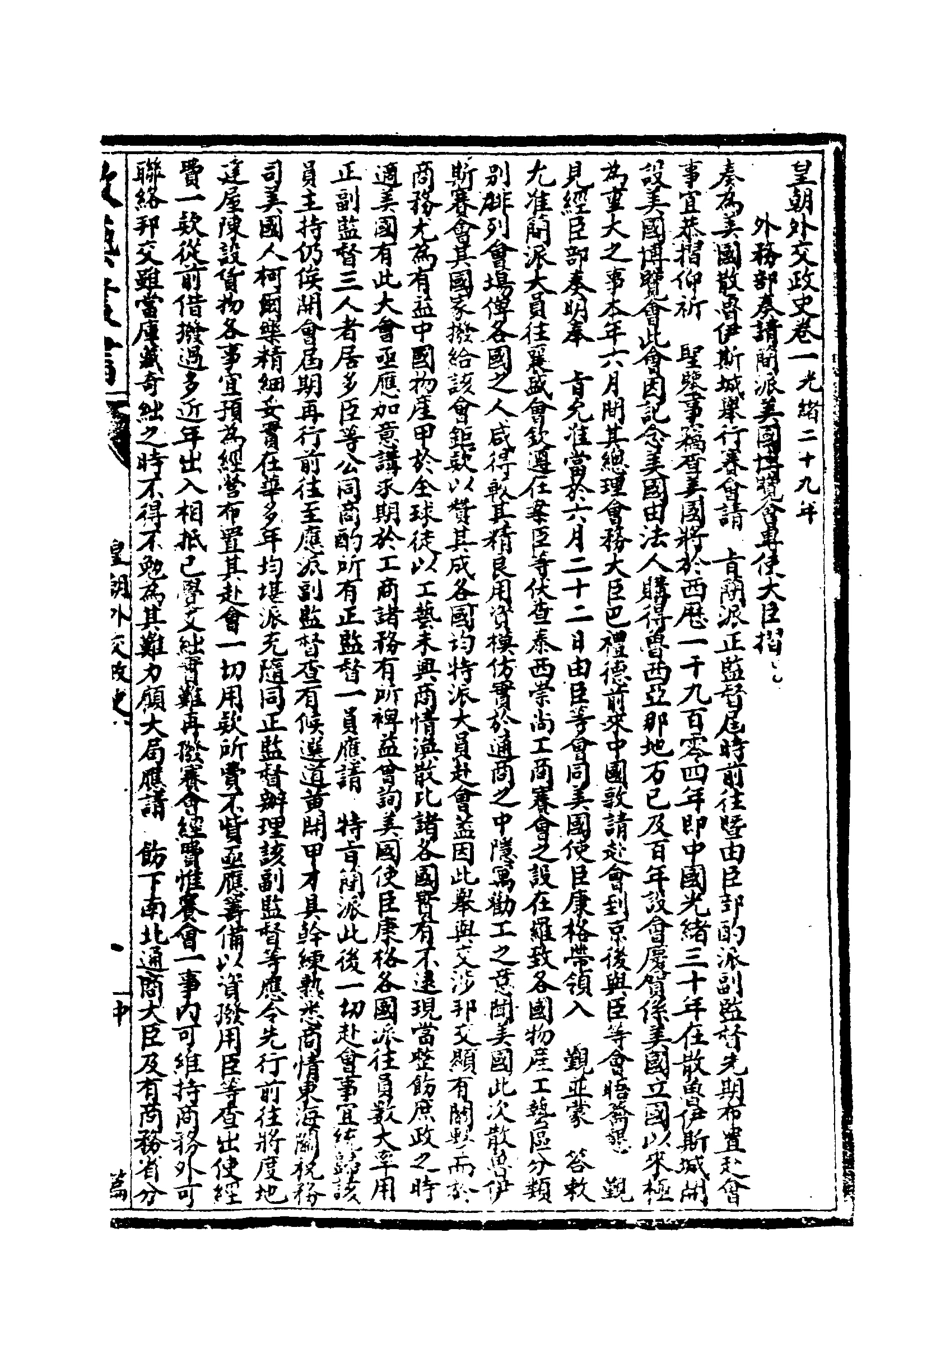 皇朝外交政史卷一光緒二十九年
外務部奏請簡派美國博覽會專使大臣摺
奏為美國散魯伊斯城舉行賽會請　旨簡派正監督屆時前往暨由臣部酌派副監督先期布置赴會
事宜恭摺仰祈　聖鑒事竊查美國將於西歷一千九百零四年即中國光緒三十年在散魯伊斯城開
設美國博覽會此會因記念美國由法人購得魯西亞那地方已及百年設會慶賀係美國立國以來極
為重大之事本年六月間其總理會務大臣巴禮德前來中國敦請赴會到京後與臣等會晤籌懇　覲
見經臣部奏明奉　旨允准當於六月二十二日由臣等會同美國使臣康格帶領入　覲並蒙　答敕
允准簡派大員往襄盛會欽遵在案臣等伏查泰西崇尚工商賽會之設在羅致各國物產工藝區分類
別排列會場俾各國之人咸得較其精良用資模仿實於通商之中隱寓勸工之意聞美國此次散魯伊
斯賽會其國家撥給該會鉅款以贊其成各國均特派大員赴會蓋因此舉與交涉邦交顯有關繫而於
商務尤為有益中國物產甲於全球徒以工藝未興商情渙散比諸各國實有不逮現當整飭庶政之時
適美國有此大會亟應加意講求期於工商諸務有所裨益曾詢美國使臣康格各國派往員數大率用
正副監督三人者居多臣等公同商酌所有正監督一員應請　特旨簡派此後一切赴會事宜統歸該
員主持仍俟開會屆期再行前往至應派副監督查有候選道黃開甲才具幹練熟悉商情東海關稅務
司美國人柯爾樂精細妥實在華多年均堪派充隨同正監督辦理該副監督等應令先行前往將度地
建屋陳設貨物各事宜預為經營布置其赴會一切用款所費不貲亟應籌備以資撥用臣等查出使經
費一款從前借撥過多近年出入相抵已屬支絀實難再撥賽會經費惟賽會一事內可維持商務外可
聯絡邦交雖當庫藏奇絀之時不得不勉為其難力顧大局應請　飭下南北通商大臣及有商務省分
皇朝外交政史
中
篇